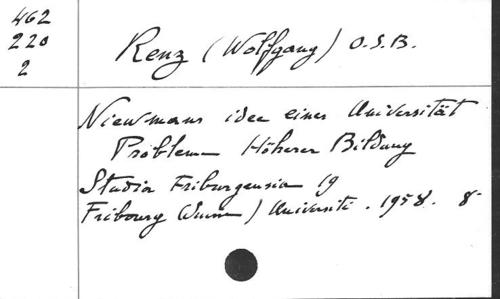 462
220
2
Renz (Wolfgang) O.S.B.
Niewmans idee einer Universität
Problem Höherer Bildung
Studia Friburgensia 19
Fribourg ) Université. 1958. 8°